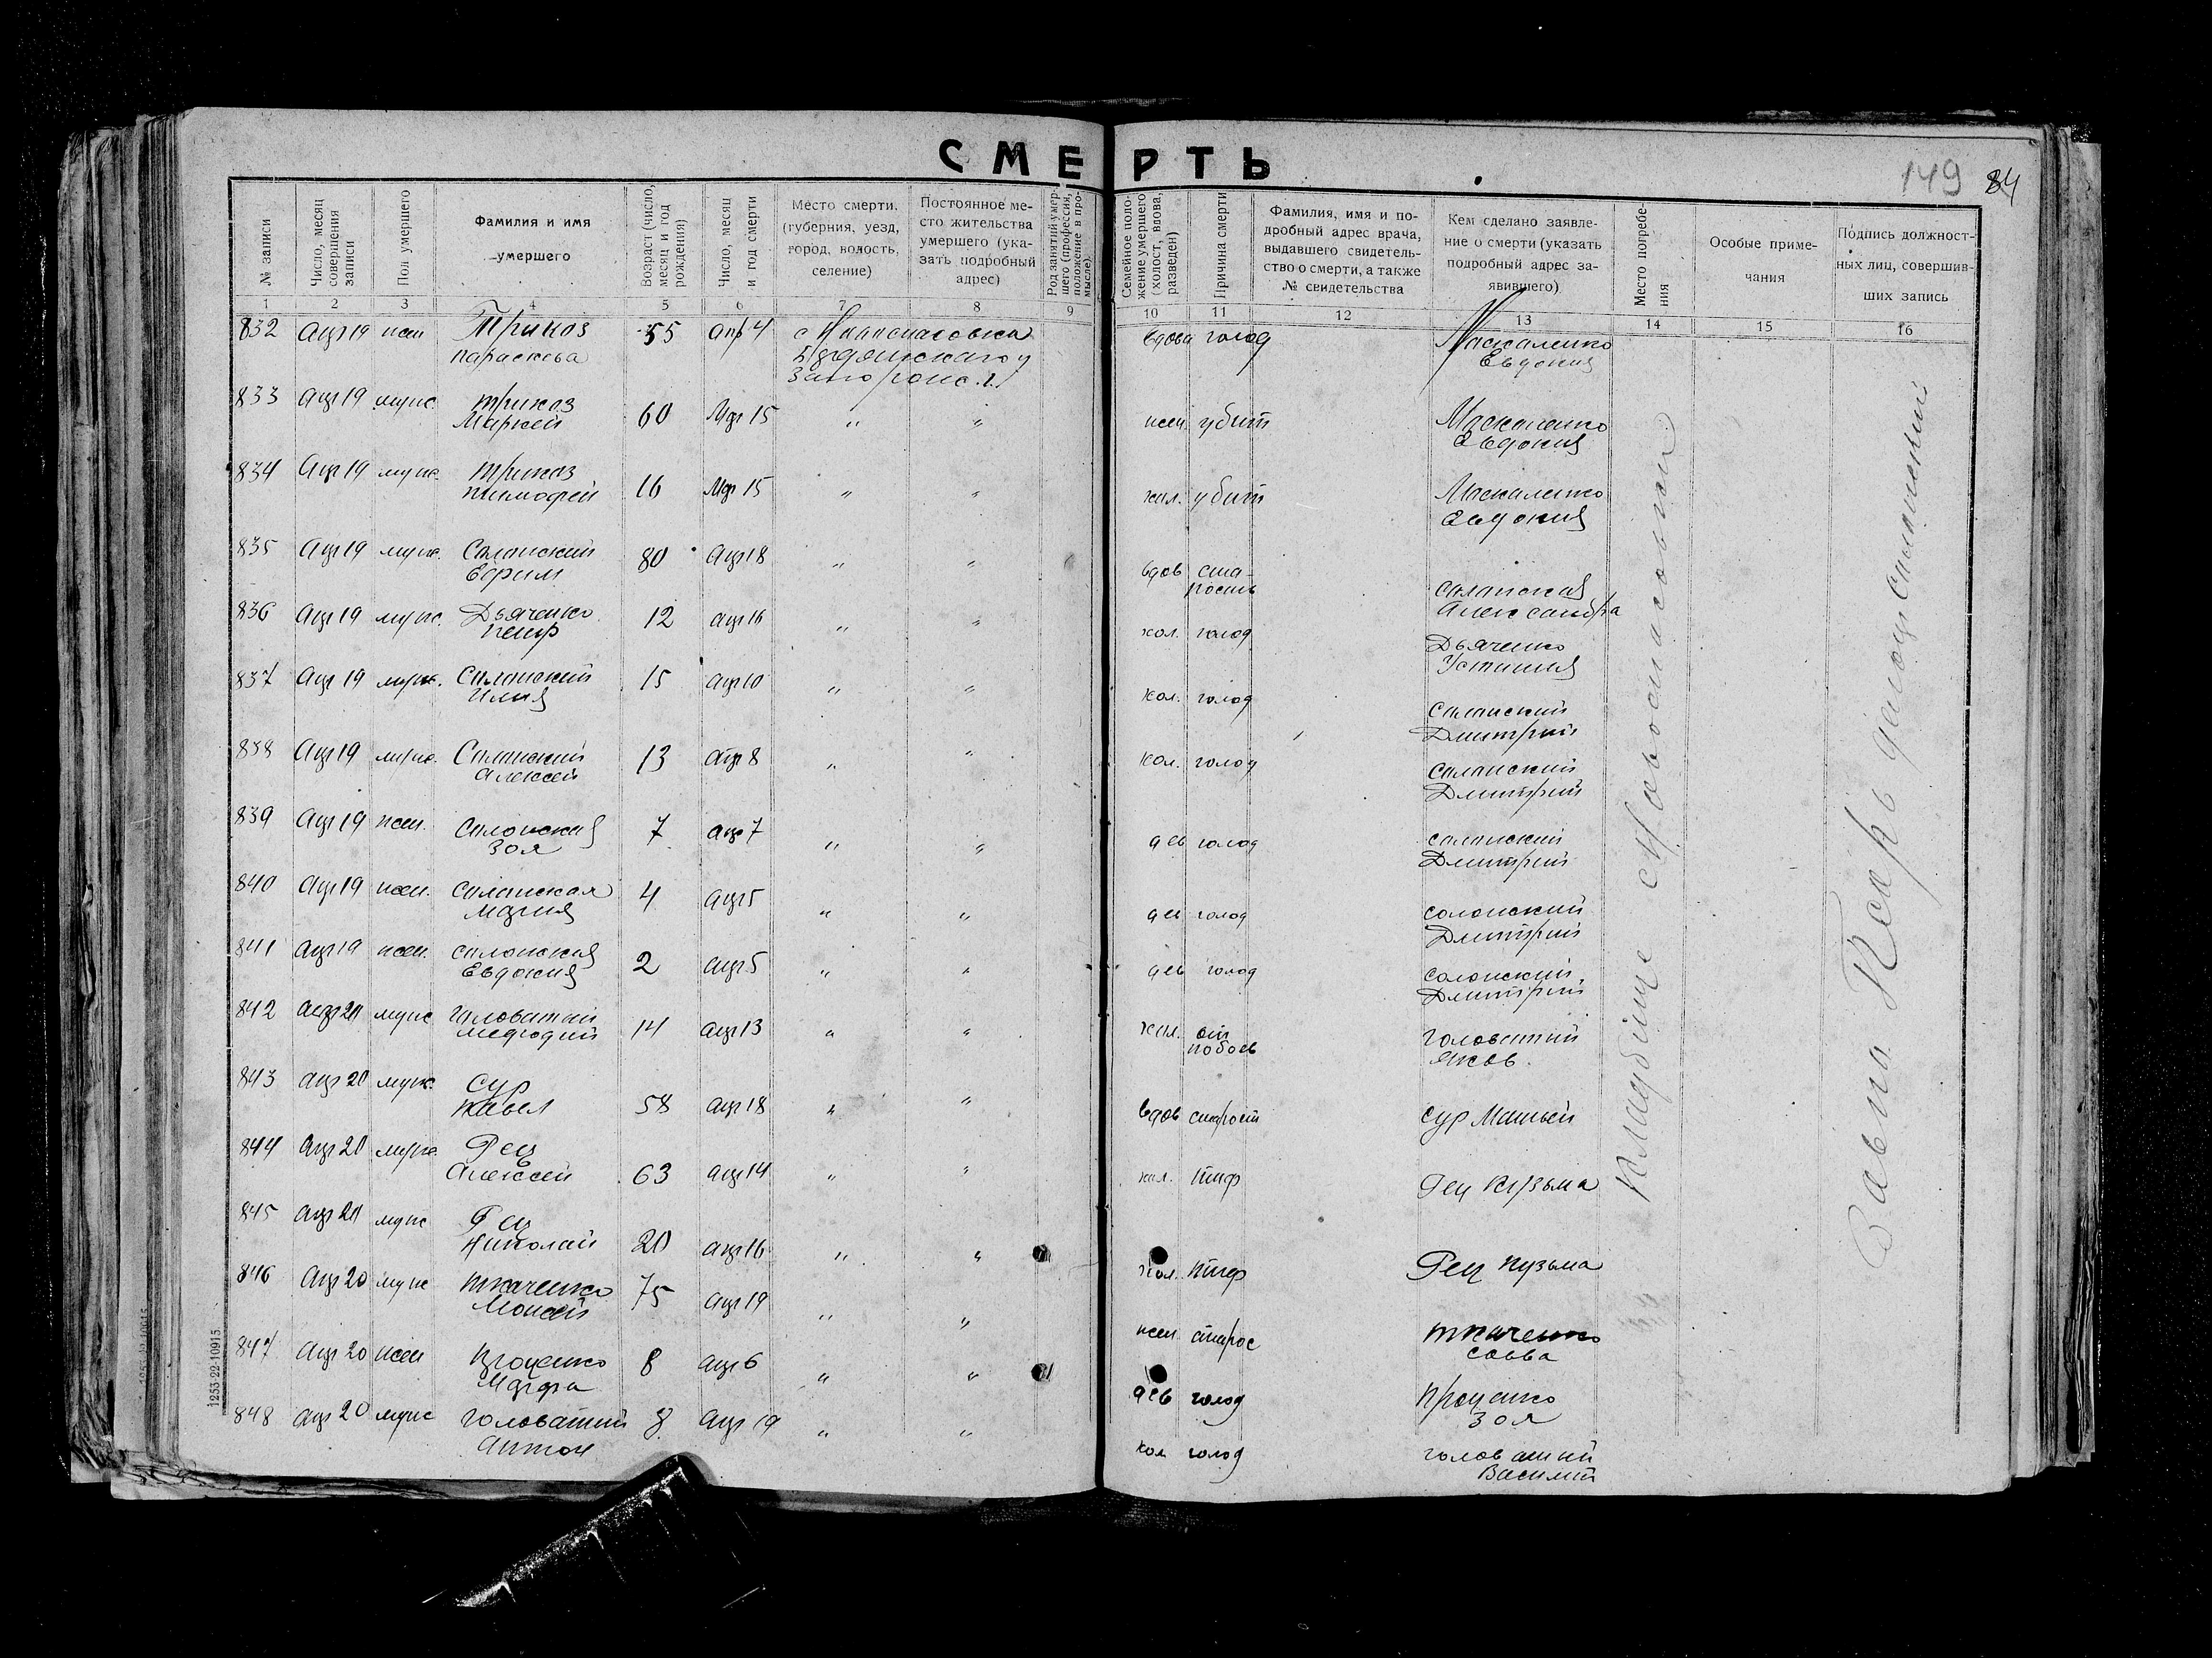 СМЕРТЬ
149 84
№ записи
Число, месяц совершения записи
Пол умершего
Фамилия и имя умершего
Возраст (число, месяц и год рождения)
Число, месяц и год смерти
Место смерти. (губерния, уезд, город, волость, селение)
Постоянное место жительства умершего (указать подробный адрес)
Род занятий умершего (профессия, положение в промысле).
Семейное положение умершего (холост, вдова, разведен)
Причина смерти
Фамилия, имя и подробный адрес врача, выдавшего свидетельство о смерти, а также № свидетельства
Кем сделано заявление о смерти (указать подробный адрес заявившего)
Место погребения
Особые примечания
Подпись должностных лиц, совершивших запись
1 2 3 4 5 6 7 8 9 10 11 12 13 14 15 16
832 апр 19 жен Триказ Параскева 55 апр 4 вдова голод Маскаленко Евдокия
833 апр 19 муж. Триказ 60 Мар 15 " " жен. убит Маскаленко Евдокия
834 апр 19 муж. Триказ Тимофей 16 Мар 15 " " хол. убит Маскаленко Евдокия
835 апр 19 муж. Солонский Ефрим 80 апр 18 " " вдов старость Солонская Александра
836 апр 19 муж. Дьяченко Петр 12 апр 16 " " хол. голод Дьяченко Устиния
837 апр 19 муж. Солонский Илия 15 апр 10 " " хол. голод Солонский Дмитрий
838 апр 19 муж. Солонский Алексей 13 апр 8 " " хол. голод Солонский Дмитрий
839 апр 19 жен. Солонская Зоя 7 апр 7 " " дев голод Солонский Дмитрий
840 апр 19 жен. Солонская Мария 4 апр 5 " " дев голод Солонский Дмитрий
841 апр 19 жен. Солонская Евдокия 2 апр 5 " " дев голод Солонский Дмитрий
842 апр 20 муж Головатий Мефодий 14 апр 13 " " хол. от побоев Головатий Яков.
843 апр 20 муж. Сур Павел 58 апр 18 " " вдов старост Сур Матвей
844 апр 20 муж. Рец Алексей 63 апр 14 " " хол. тиф Рец Кузьма
845 апр 20 муж Рец Николай 20 апр 16 " " хол. тиф Рец Кузьма
846 апр 20 муж Ткаченко Моисей 75 апр 19 " " жен старос Ткаченко Савва
847 апр 20 жен Проценко Марфа 8 апр 6 " " дев голод Проценко Зоя
848 апр 20 муж Головатий Антон 8 апр 19 " " хол голод Головатий Василий
Кладбище с Новоспасовки
Завпа Псарь
1253-22-10915